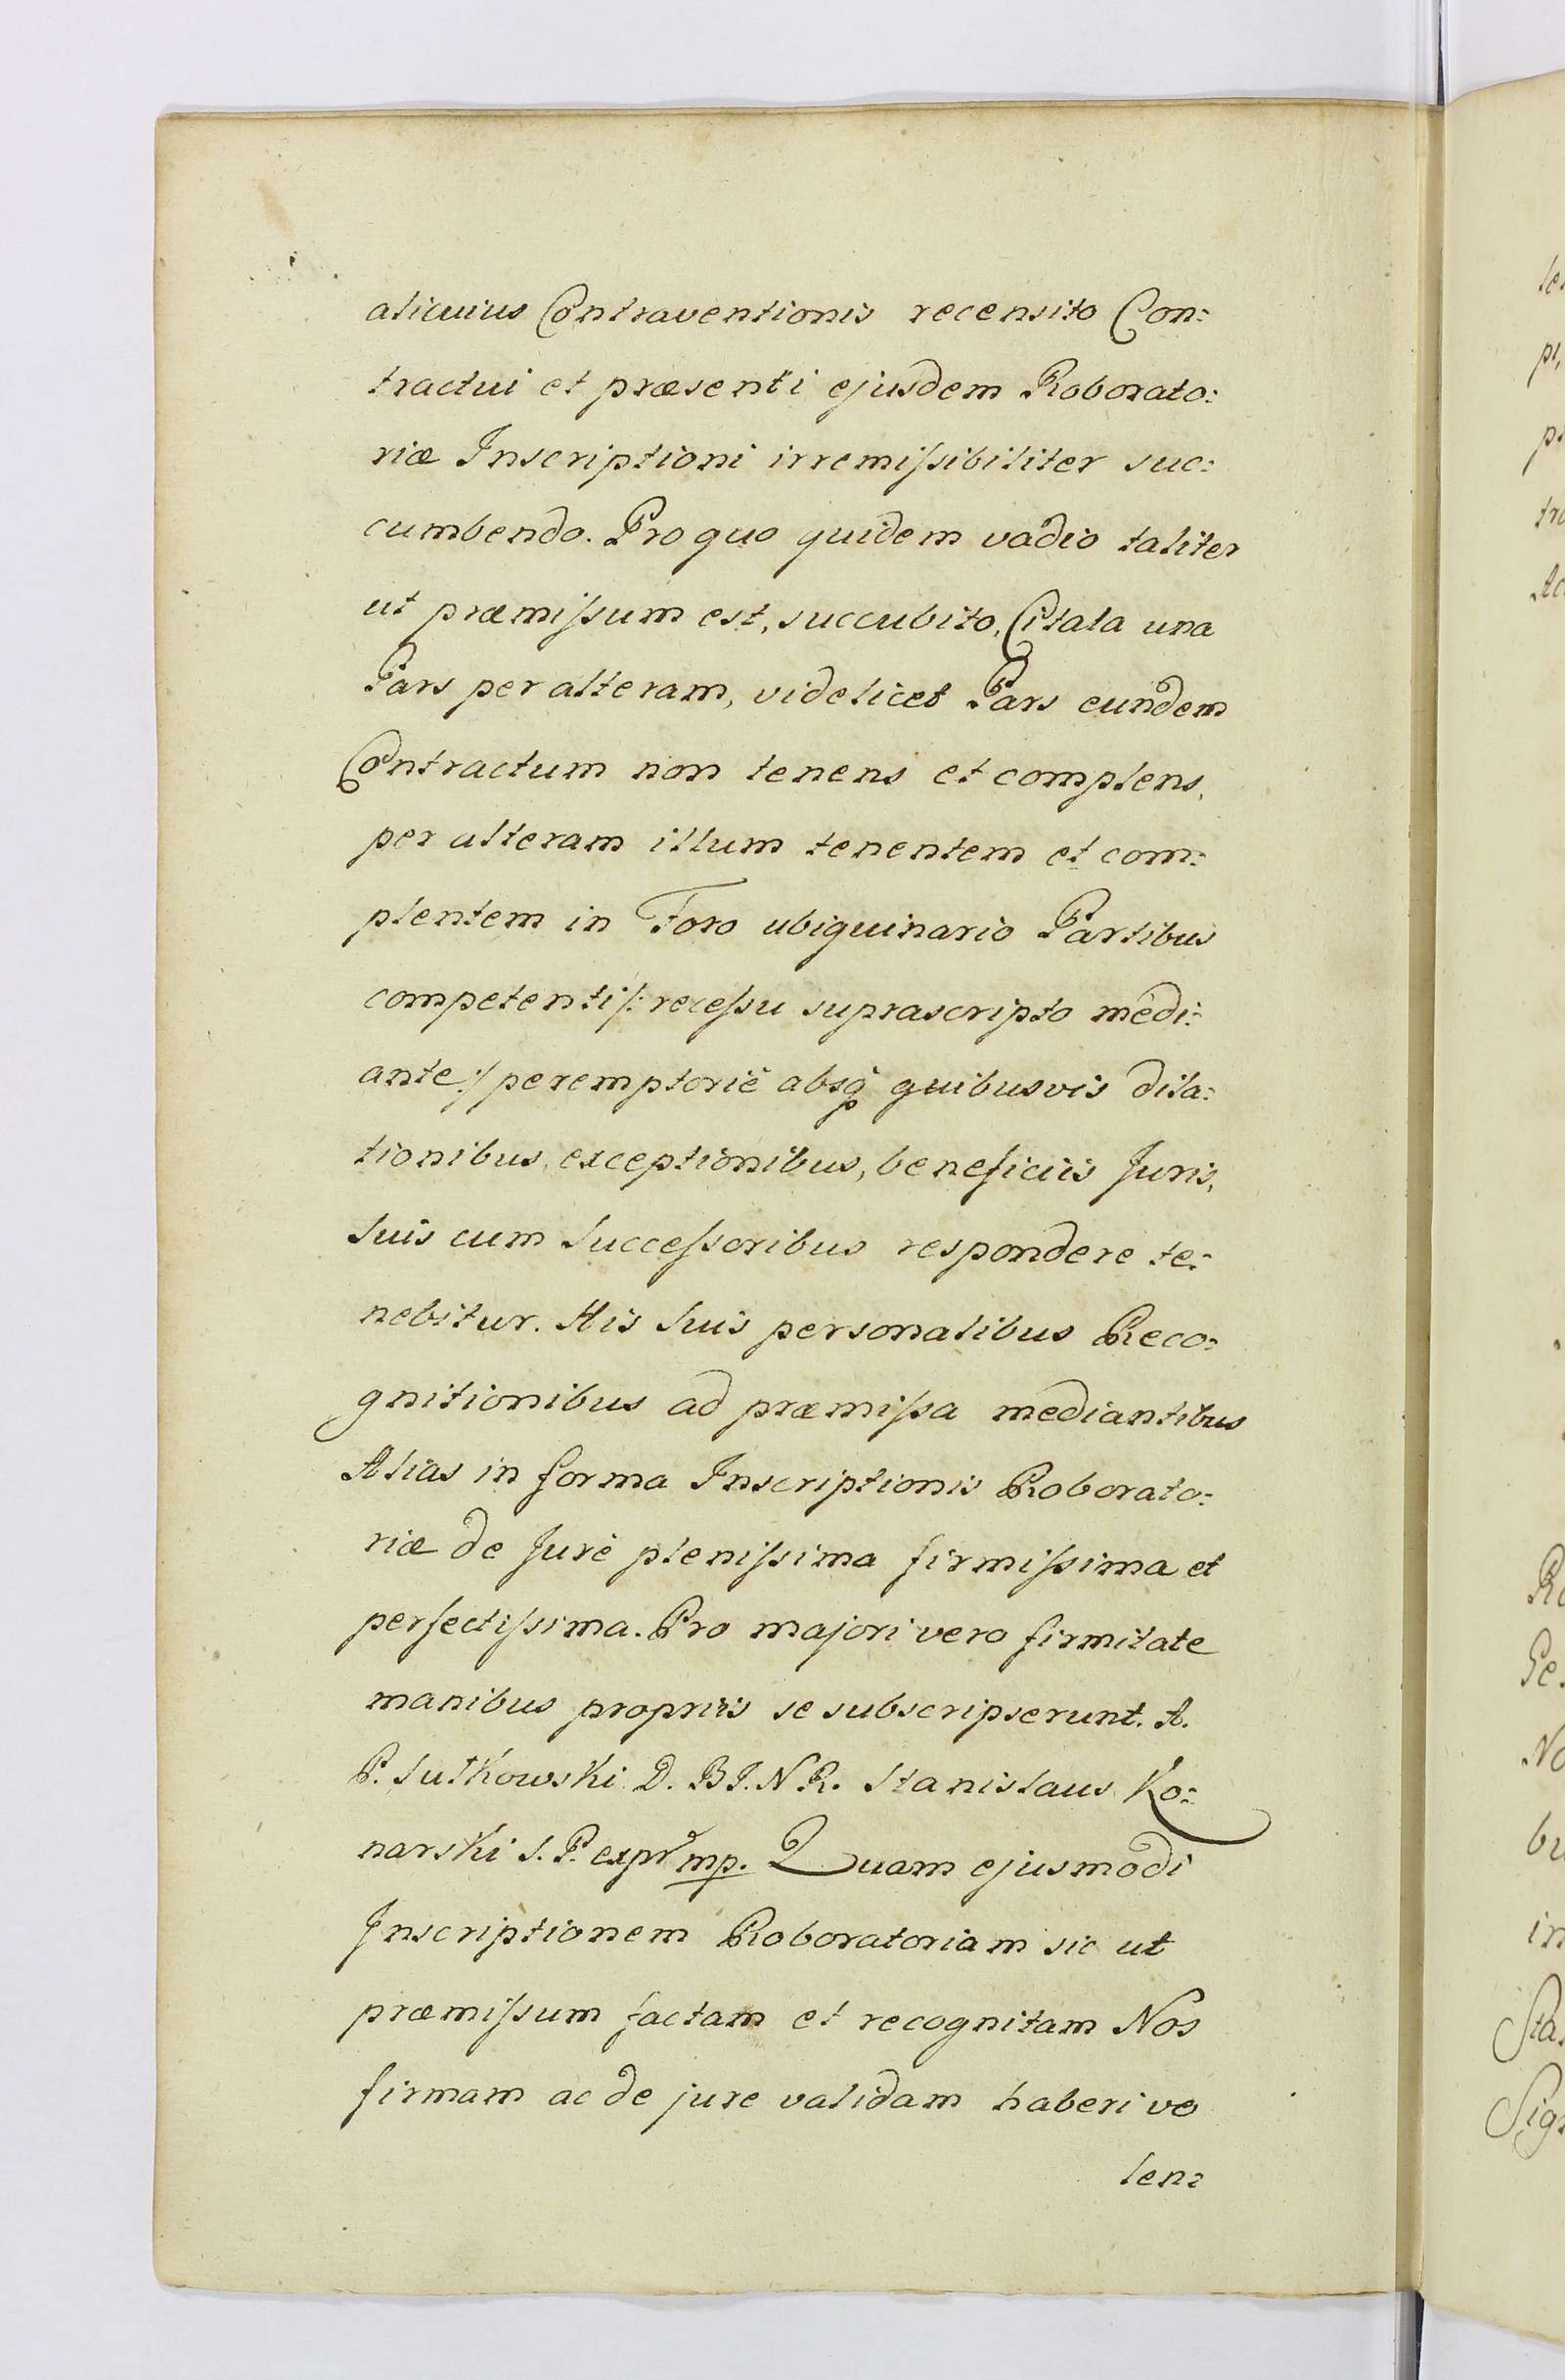 alicuius Contraventionis recensito Con:
tractui et præsenti ejusdem Roborato:
riæ Inscriptioni irremiſsibiliter suc:
cumbendo. Pro quo quidem vadio taliter
ut præmiſsum est, succubito, Citata una
Pars per alteram, videlicet Pars eundem
Contractum non tenens et complens,
per alteram illum tenentem et com:
plentem in Foro ubiquinario Partibus
competenti /: receſsu suprascripto medi:
ante :/ peremptoriè absq quibusvis dila:
tionibus, exceptionibus, beneficiis Juris,
Suis cum Succeſsoribus respondere te:
nebitur. His Suis personalibus Reco:
gnitionibus ad præmiſsa mediantibus
Alias in forma Inscriptionis Roborato:
riæ de Jurè pleniſsima firmiſsima et
perfectiſsima. Pro majori vero firmitate
manibus propriis se subscripserunt. A.
P. Sutkowski D. B I. N R. Stanislaus Ko:
narski S. P. expr mp. Quam ejusmodi
Inscriptionem Roboratoriam sic ut
præmiſsum factam et recognitam Nos
firmam ac de jure validam haberi vo
len: